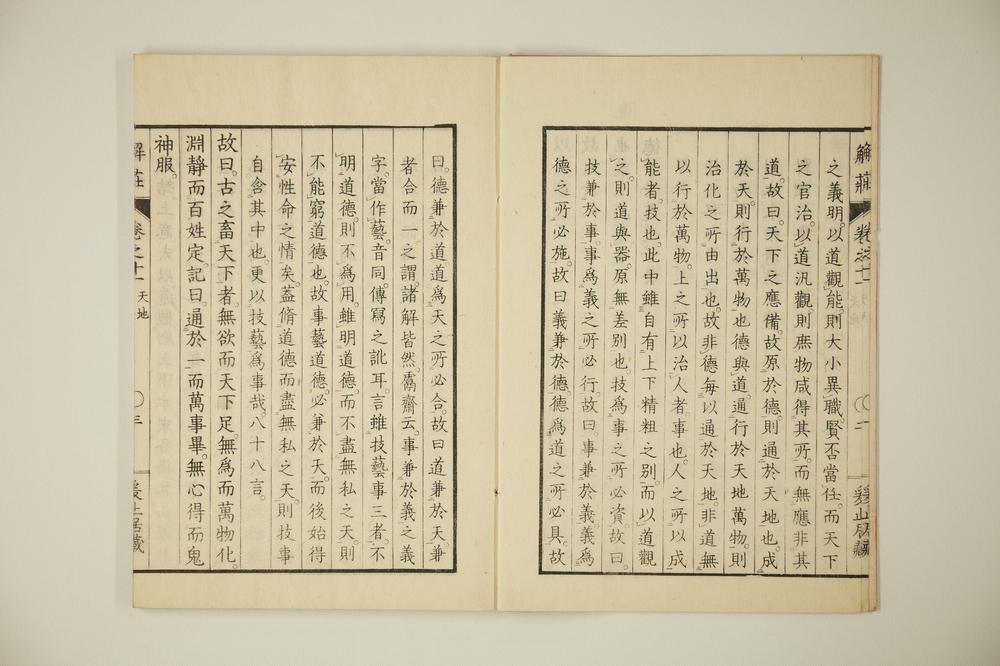 解莊 卷之十二 天地 〇二 爰止居藏
之義明。以道觀能。則大小異職。賢否當任。而天下
之官治。以道汎觀。則庶物咸得其所。而無應非其
道。故曰。天下之應備。故原於德。則通於天地也。成
於天。則行於萬物也。德與道。通行於天地萬物。則
治化之所由出也。故非德每以通於天地。非道無
以行於萬物。上之所以治人者。事也。人之所以成
能者。技也。此中雖自有上下精粗之別。而以道觀
之。則道與器。原無差別也。技爲事之所必資。故曰。
技兼於事。事爲義之所必行。故曰。事兼於義。義爲
德之所必施。故曰義兼於德。德爲道之所必具。故
曰。德兼於道。道爲天之所必合。故曰道兼於天。兼
者合而一之謂。諸解皆然。鬳齋云。事兼於義之義
字。當作藝。音同。傳寫之訛耳。言雖技藝事三者。不
明道德。則不爲用。雖明道德。而不盡無私之天。則
不能窮道德也。故事藝道德。必兼於天。而後始得
安性命之情矣。蓋脩道德而盡無私之天。則技事
自含其中也。更以技藝爲事哉。八十八言。
故曰。古之畜天下者。無欲而天下足。無爲而萬物化。
淵靜而百姓定。記曰。通於一而萬事畢。無心得而鬼
神服。
解莊 卷之十二 天地 〇三 爰止居藏